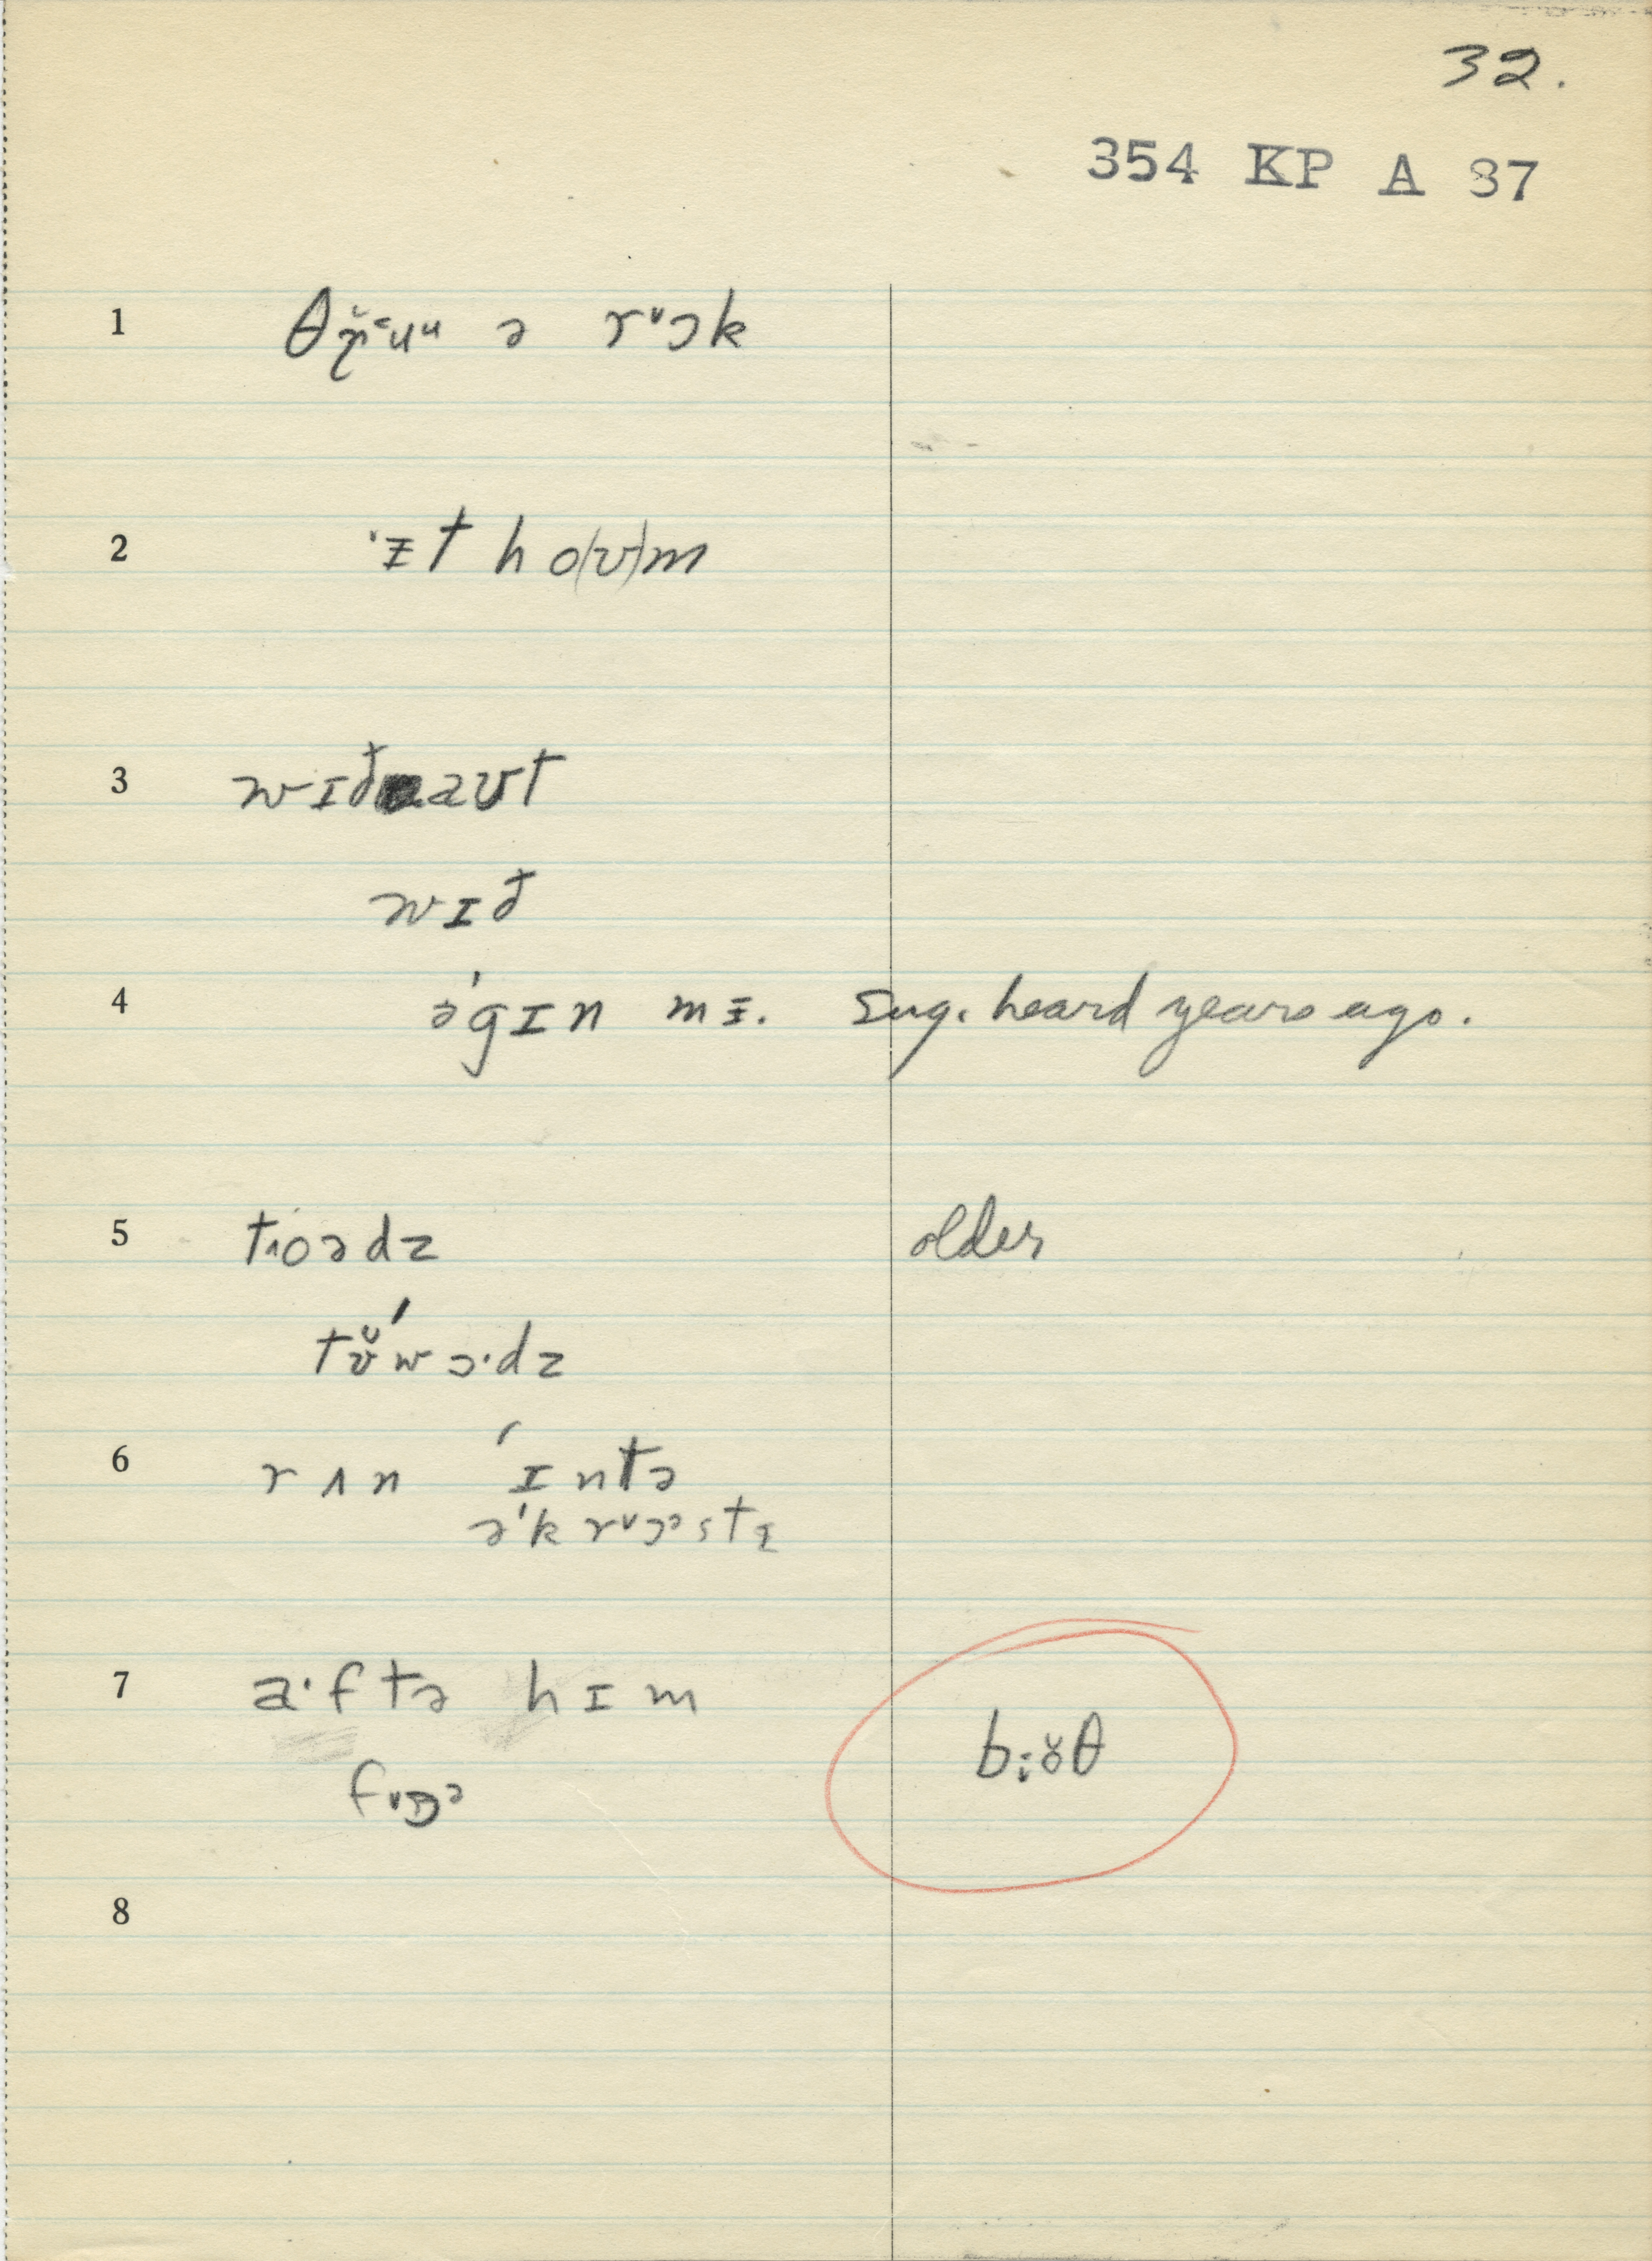 32.
354 KP A 37
1 ə rᵛɔk
2 ᵻt ho(ʊ)m
3 wɪð aʊt
wɪð
4 ə'gɪn mᵻ. Sug. heard years ago.
5 t˄oədz older
tʊ̆́wɔ·dz
6 rʌn 'ɪntə
ə'krᵛɔᵊstɪ
7 a·ftə hɪm
fᵛɒᵊ
8